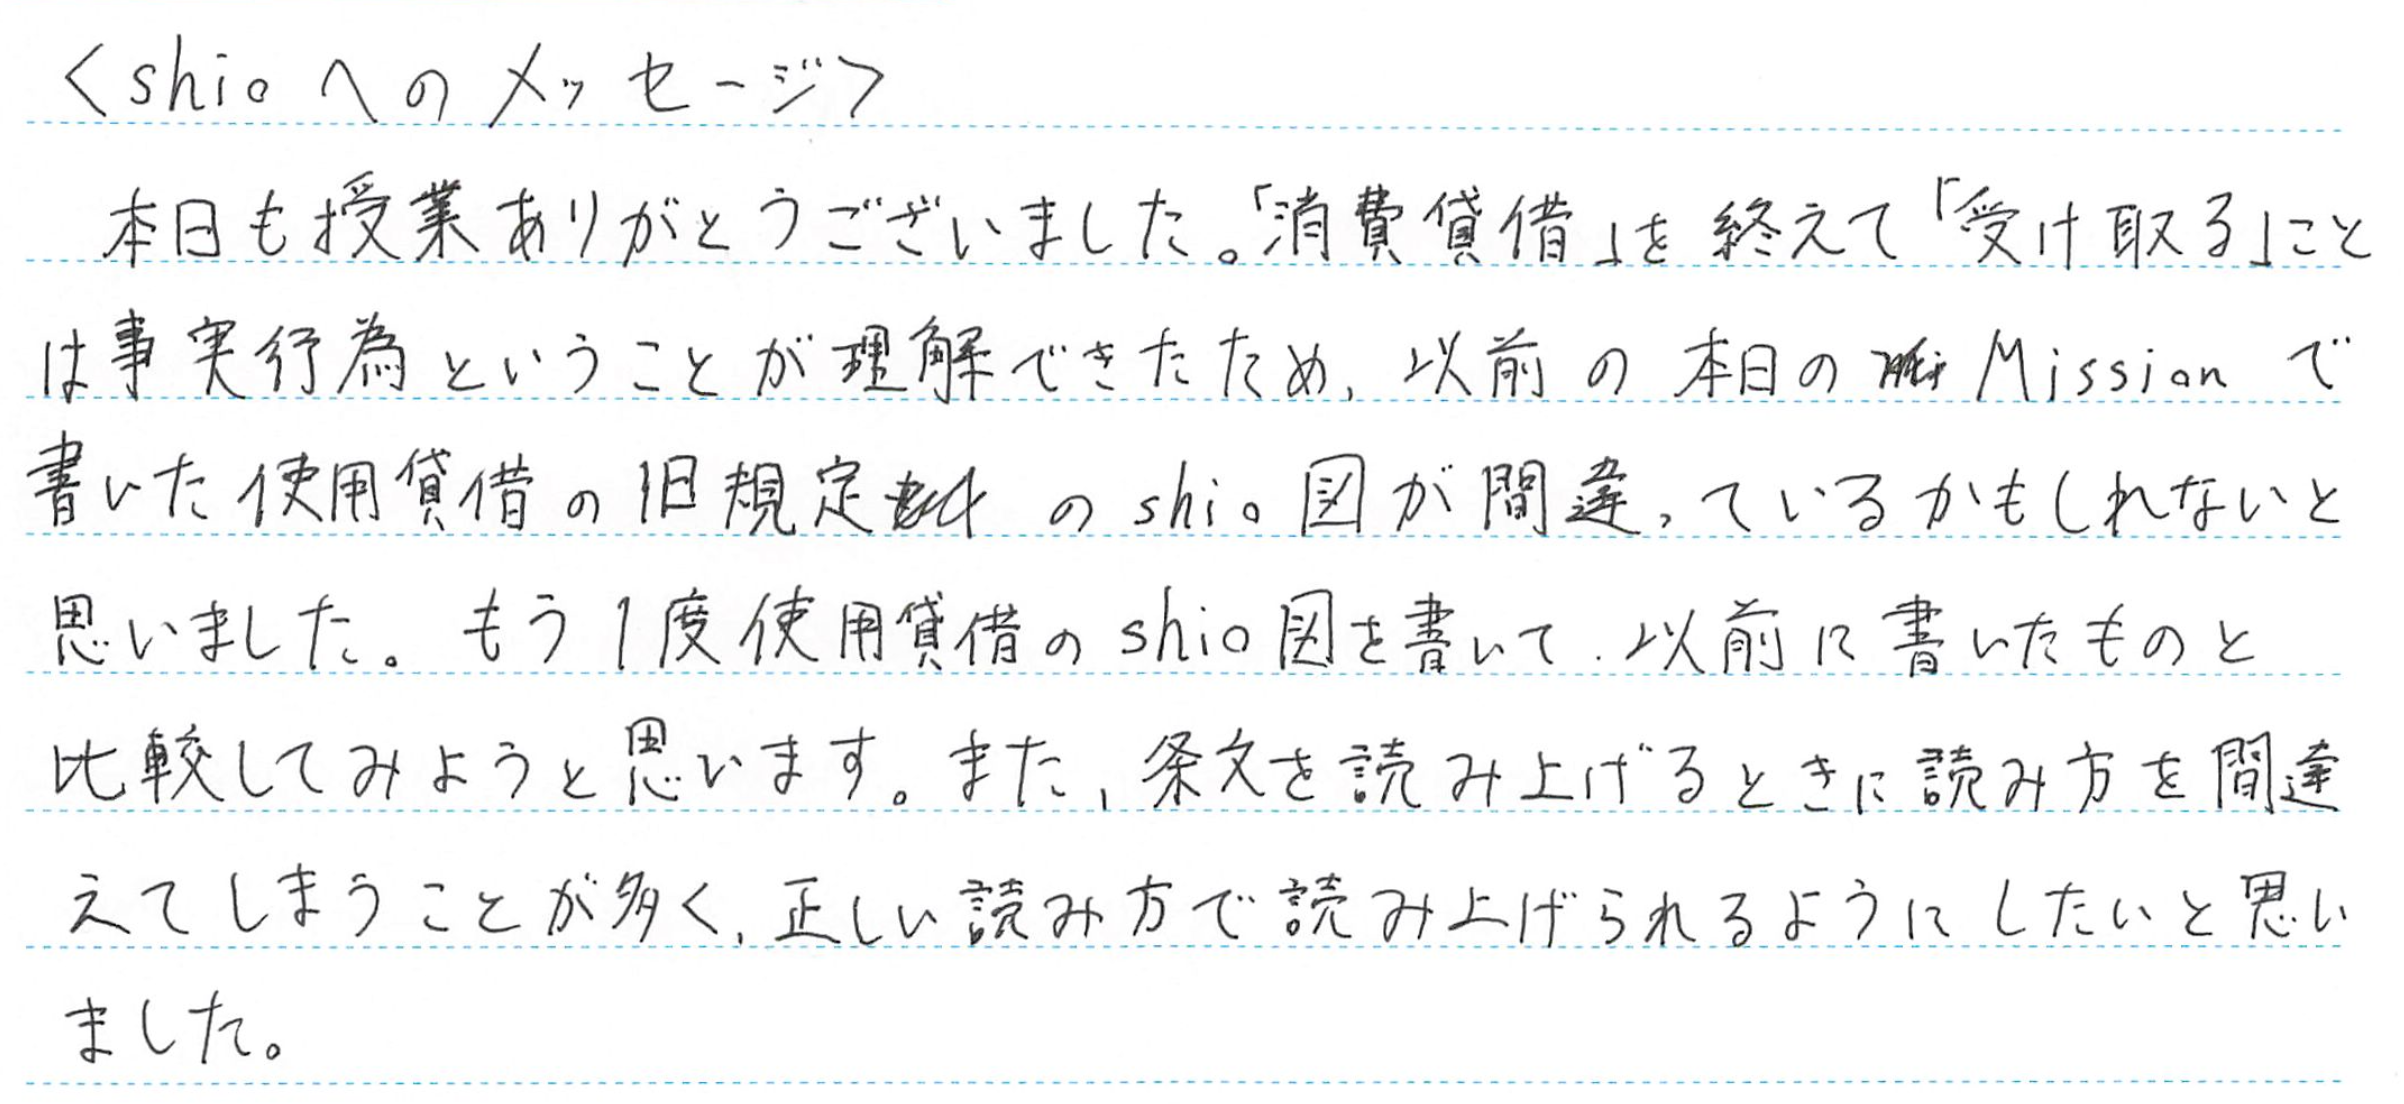 <shioへのメッセージ>
本日も授業ありがとうございました。「消費貸借」を終えて「受け取る」こと
は事実行為ということが理解できたため、以前の本日のMissionで
書いた使用貸借の旧規定のshio図が間違っているかもしれないと
思いました。もう1度使用貸借のshio図を書いて、以前に書いたものと
比較してみようと思います。また、条文を読み上げるときに読み方を間違
えてしまうことが多く、正しい読み方で読み上げられるようにしたいと思い
ました。